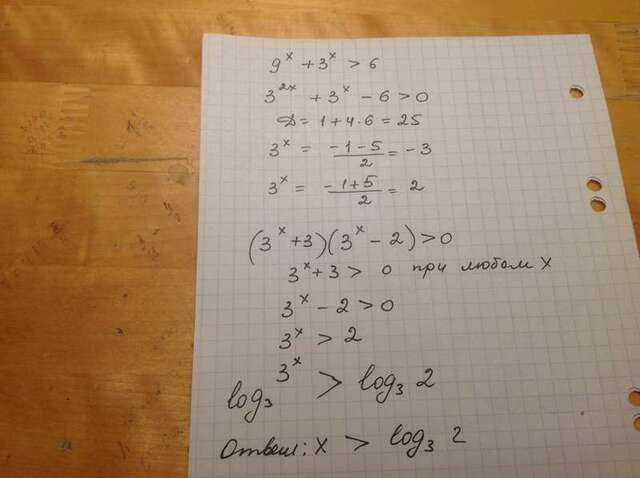 9^x + 3^x > 6
3^2x + 3^x - 6 > 0
D = 1 + 4 · 6 = 25
3^x = (-1-5)/2 = -3
3^x = (-1+5)/2 = 2
(3^x + 3)(3^x - 2) > 0
3^x + 3 > 0 при любом x
3^x - 2 > 0
3^x > 2
log₃ 3^x > log₃ 2
Ответ: x > log₃ 2